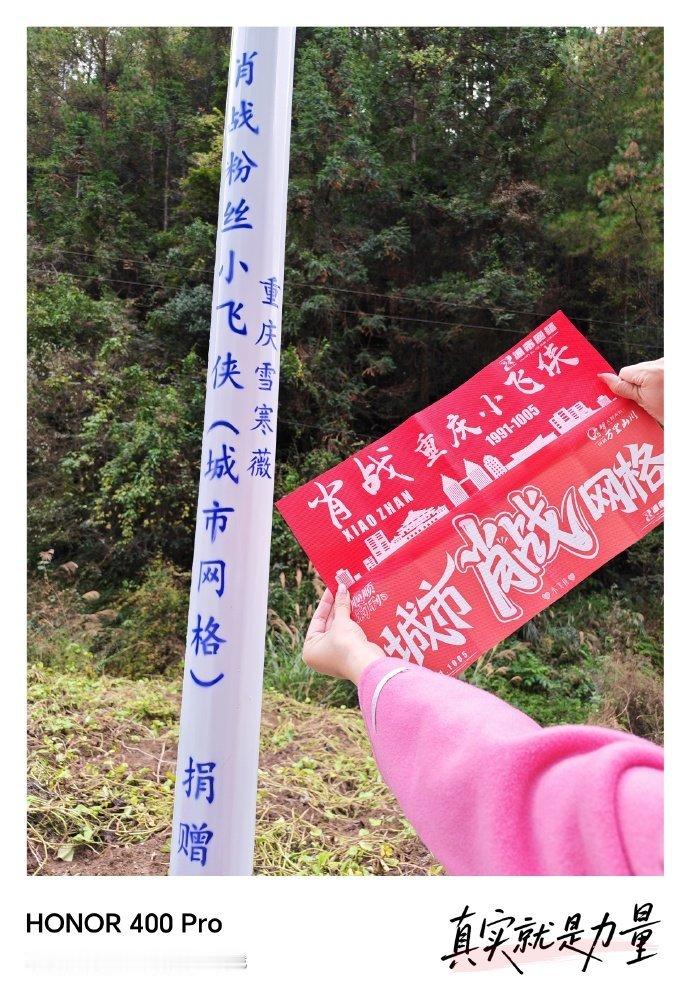 肖战粉丝小飞侠（城市网格） 捐赠
重庆雪寒薇
肖战 重庆小飞侠
XIAO ZHAN
1991-1005
万里山川
城市肖战网格
1005
HONOR 400 Pro
真实就是力量